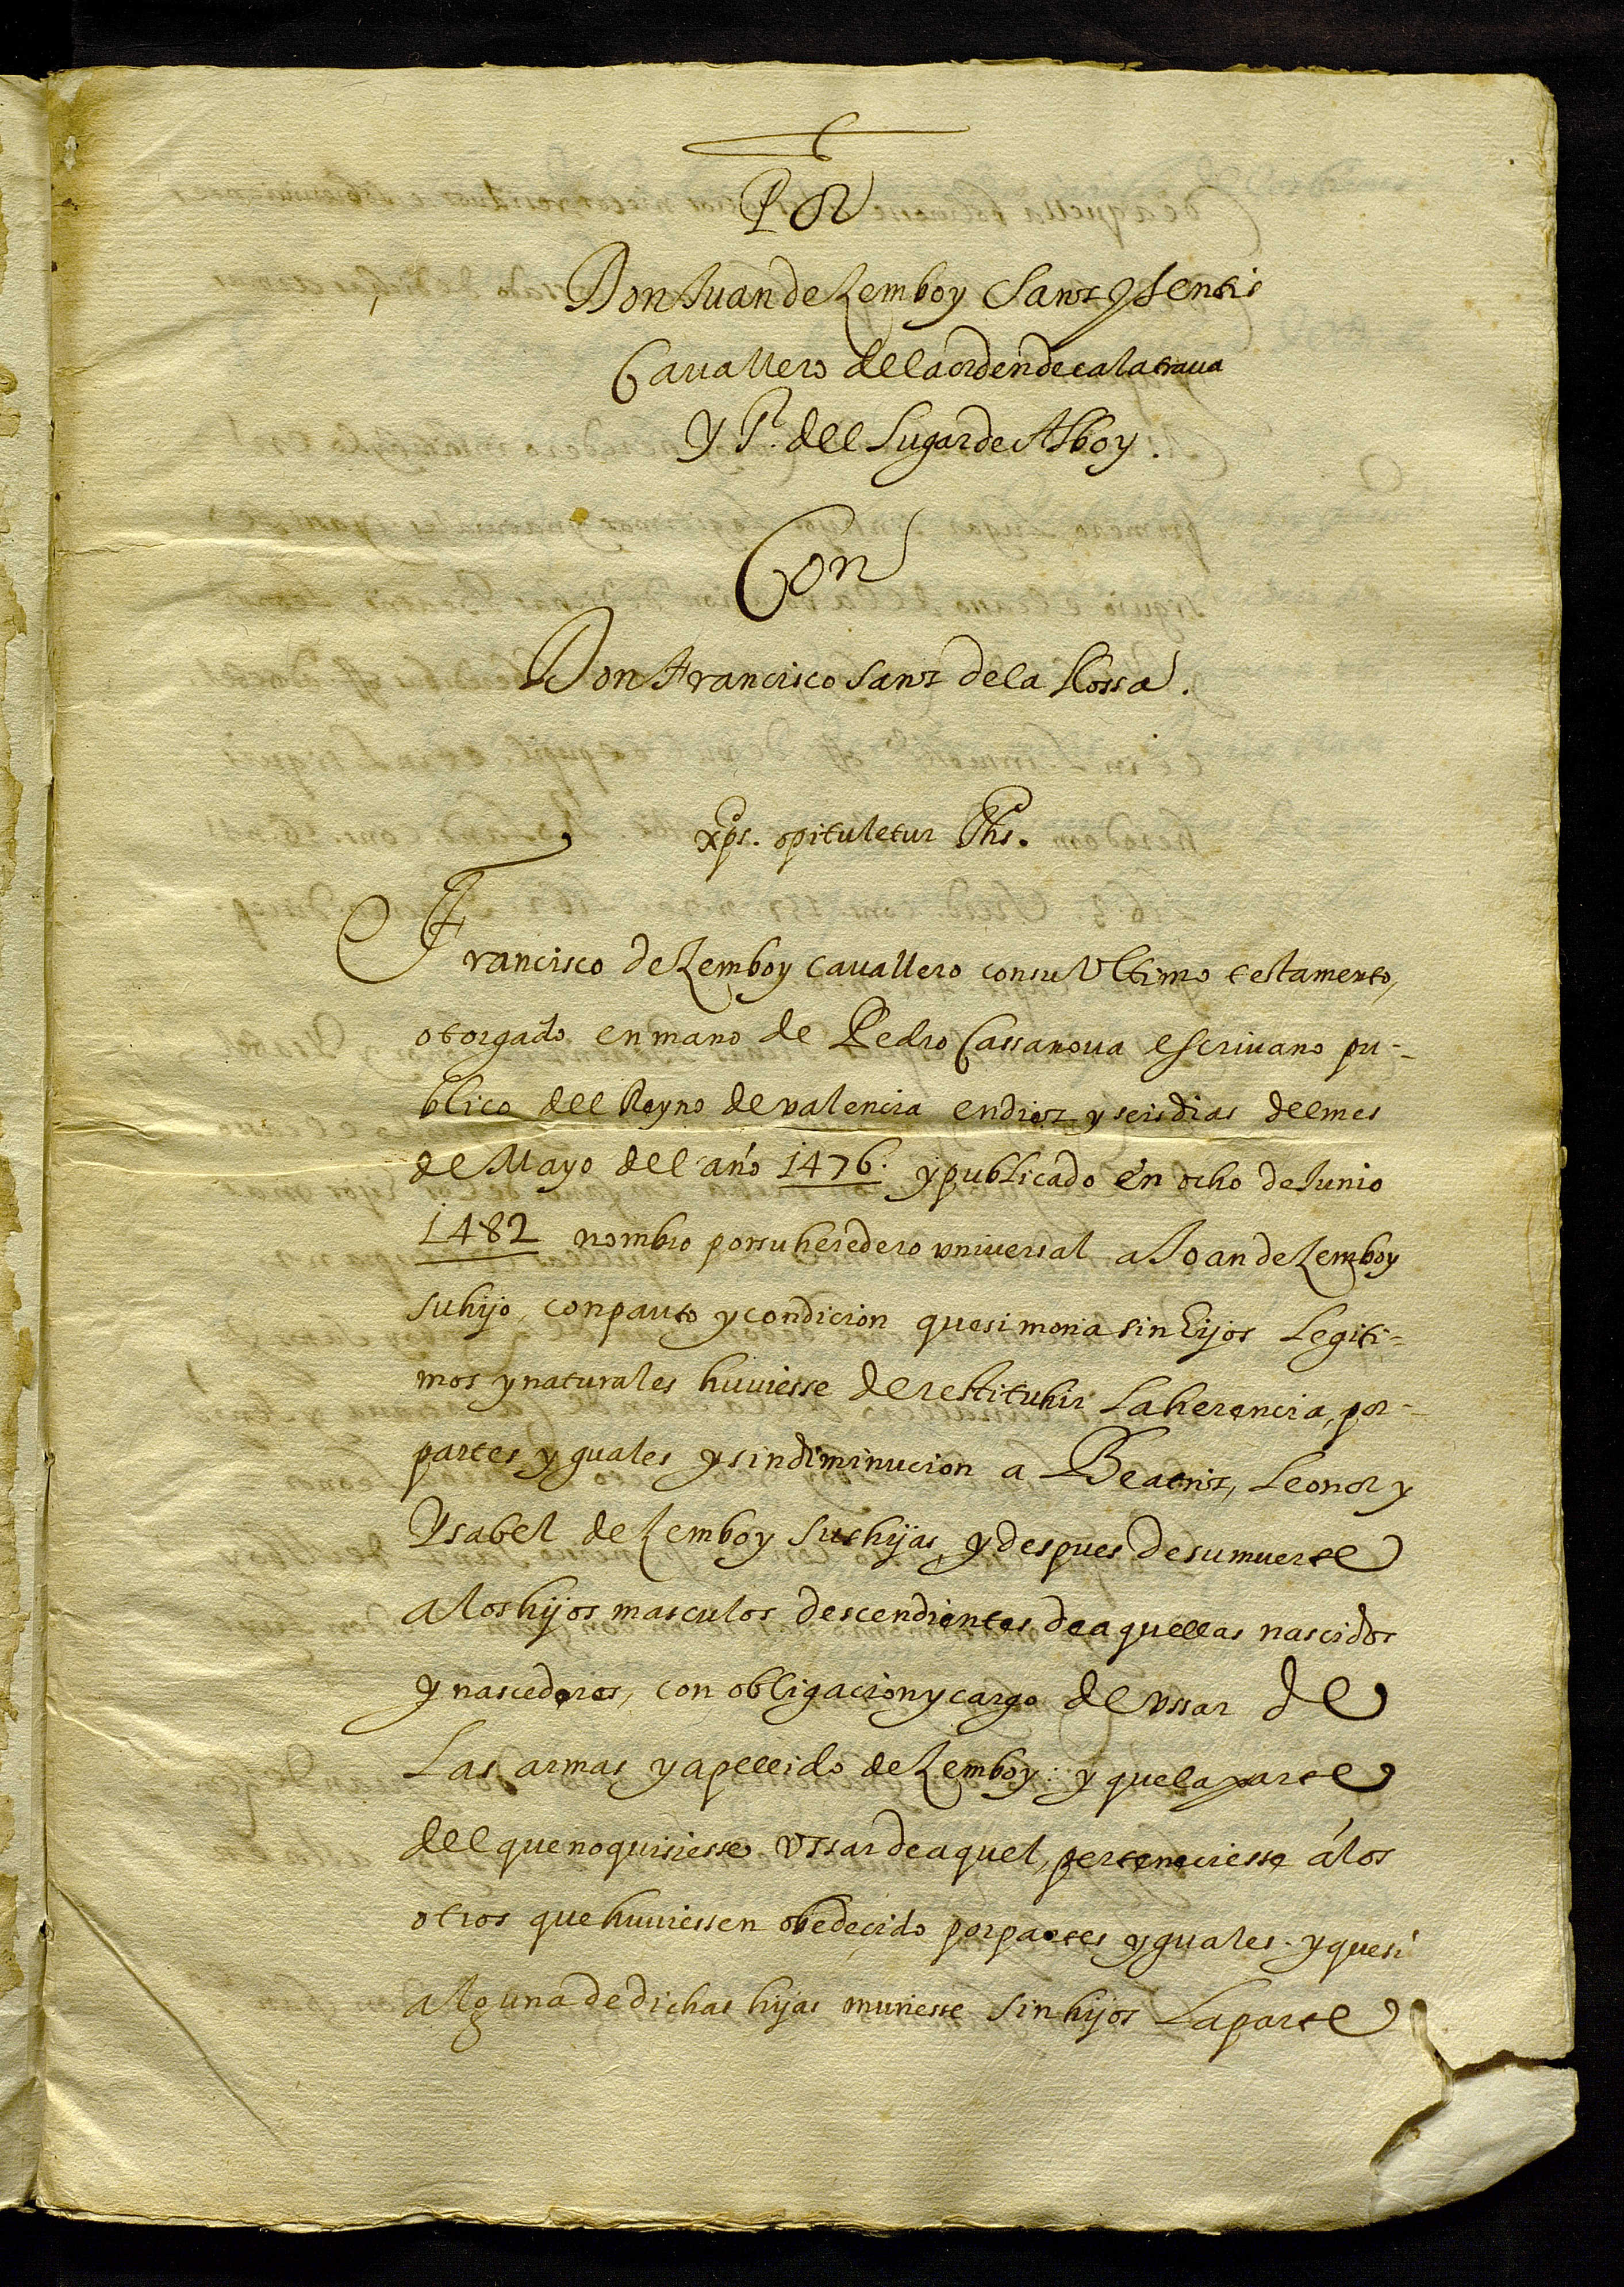 Por
Don Juan de Zemboy Sanz y Sentis
Cavallero de la orden de calatraua
Y Sr. del Lugar de Alboy.
Con
Don Francisco Sanz de la Llossa.
xps. opituletur Jhs.
Francisco de Zemboy cavallero con su Ultimo testamento,
otorgado en mano de Pedro Cassanoua escriuano pu-
blico del Reyno de valencia en diez y seis dias del mes
de Mayo del año 1476. y publicado en ocho de Junio
1482 nombro por su heredero universal a Joan de Zemboy
su hijo, con pauto y condicion que si moria sin hijos Legiti-
mos y naturales huviesse de restituhir La herencia, por-
partes yguales y sin diminucion a Beatriz, Leonor y
Ysabel de Zemboy sus hijas, y despues de su muerte
a los hijos masculos descendientes de aquellas nascidos
y nascederos, con obligacion y cargo de vssar de
Las armas y apellido de Zemboy: y que la parte
del que no quisiesse vssar de aquel, perteneciesse á los
otros que huuiessen obedecido por partes yguales. y que si
alguna de dichas hijas muriesse sin hijos La parte